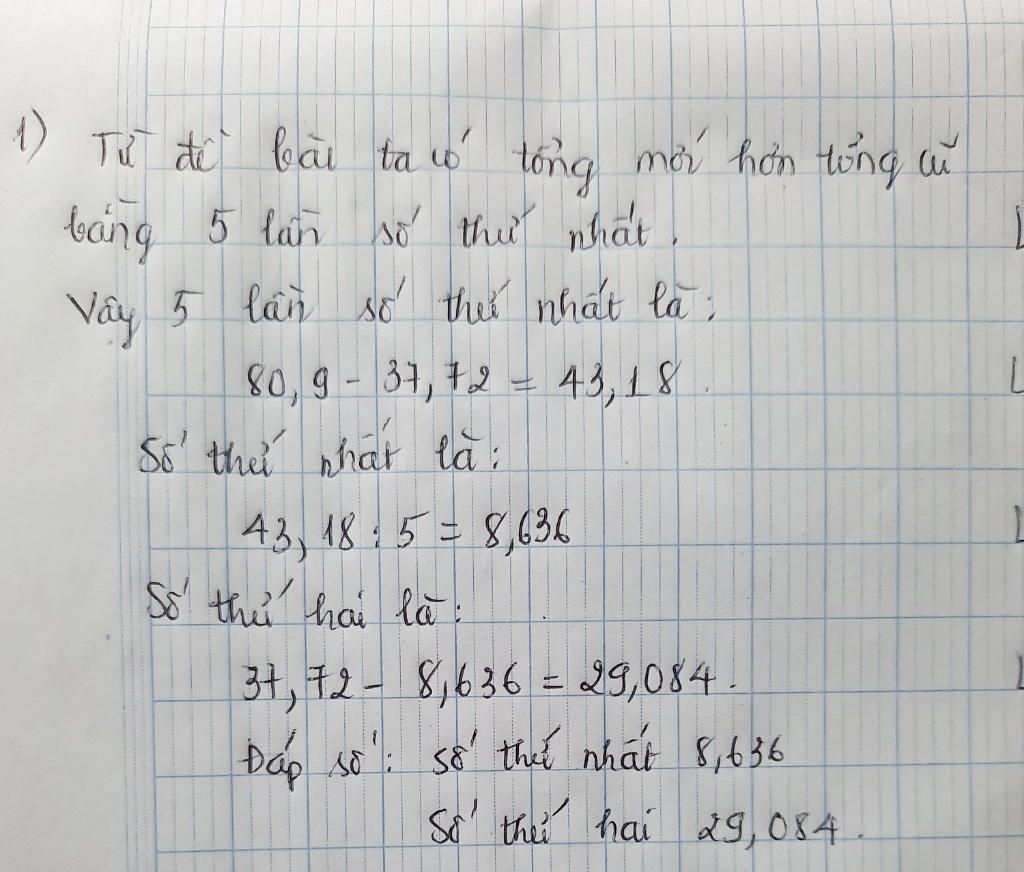 1) Từ đề bài ta có tổng mới hơn tổng cũ
bằng 5 lần số thứ nhất.
Vậy 5 lần số thứ nhất là:
80,9 - 37,72 = 43,18.
Số thứ nhất là:
43,18 : 5 = 8,636
Số thứ hai là:
37,72 - 8,636 = 29,084.
Đáp số: số thứ nhất 8,636
Số thứ hai 29,084.